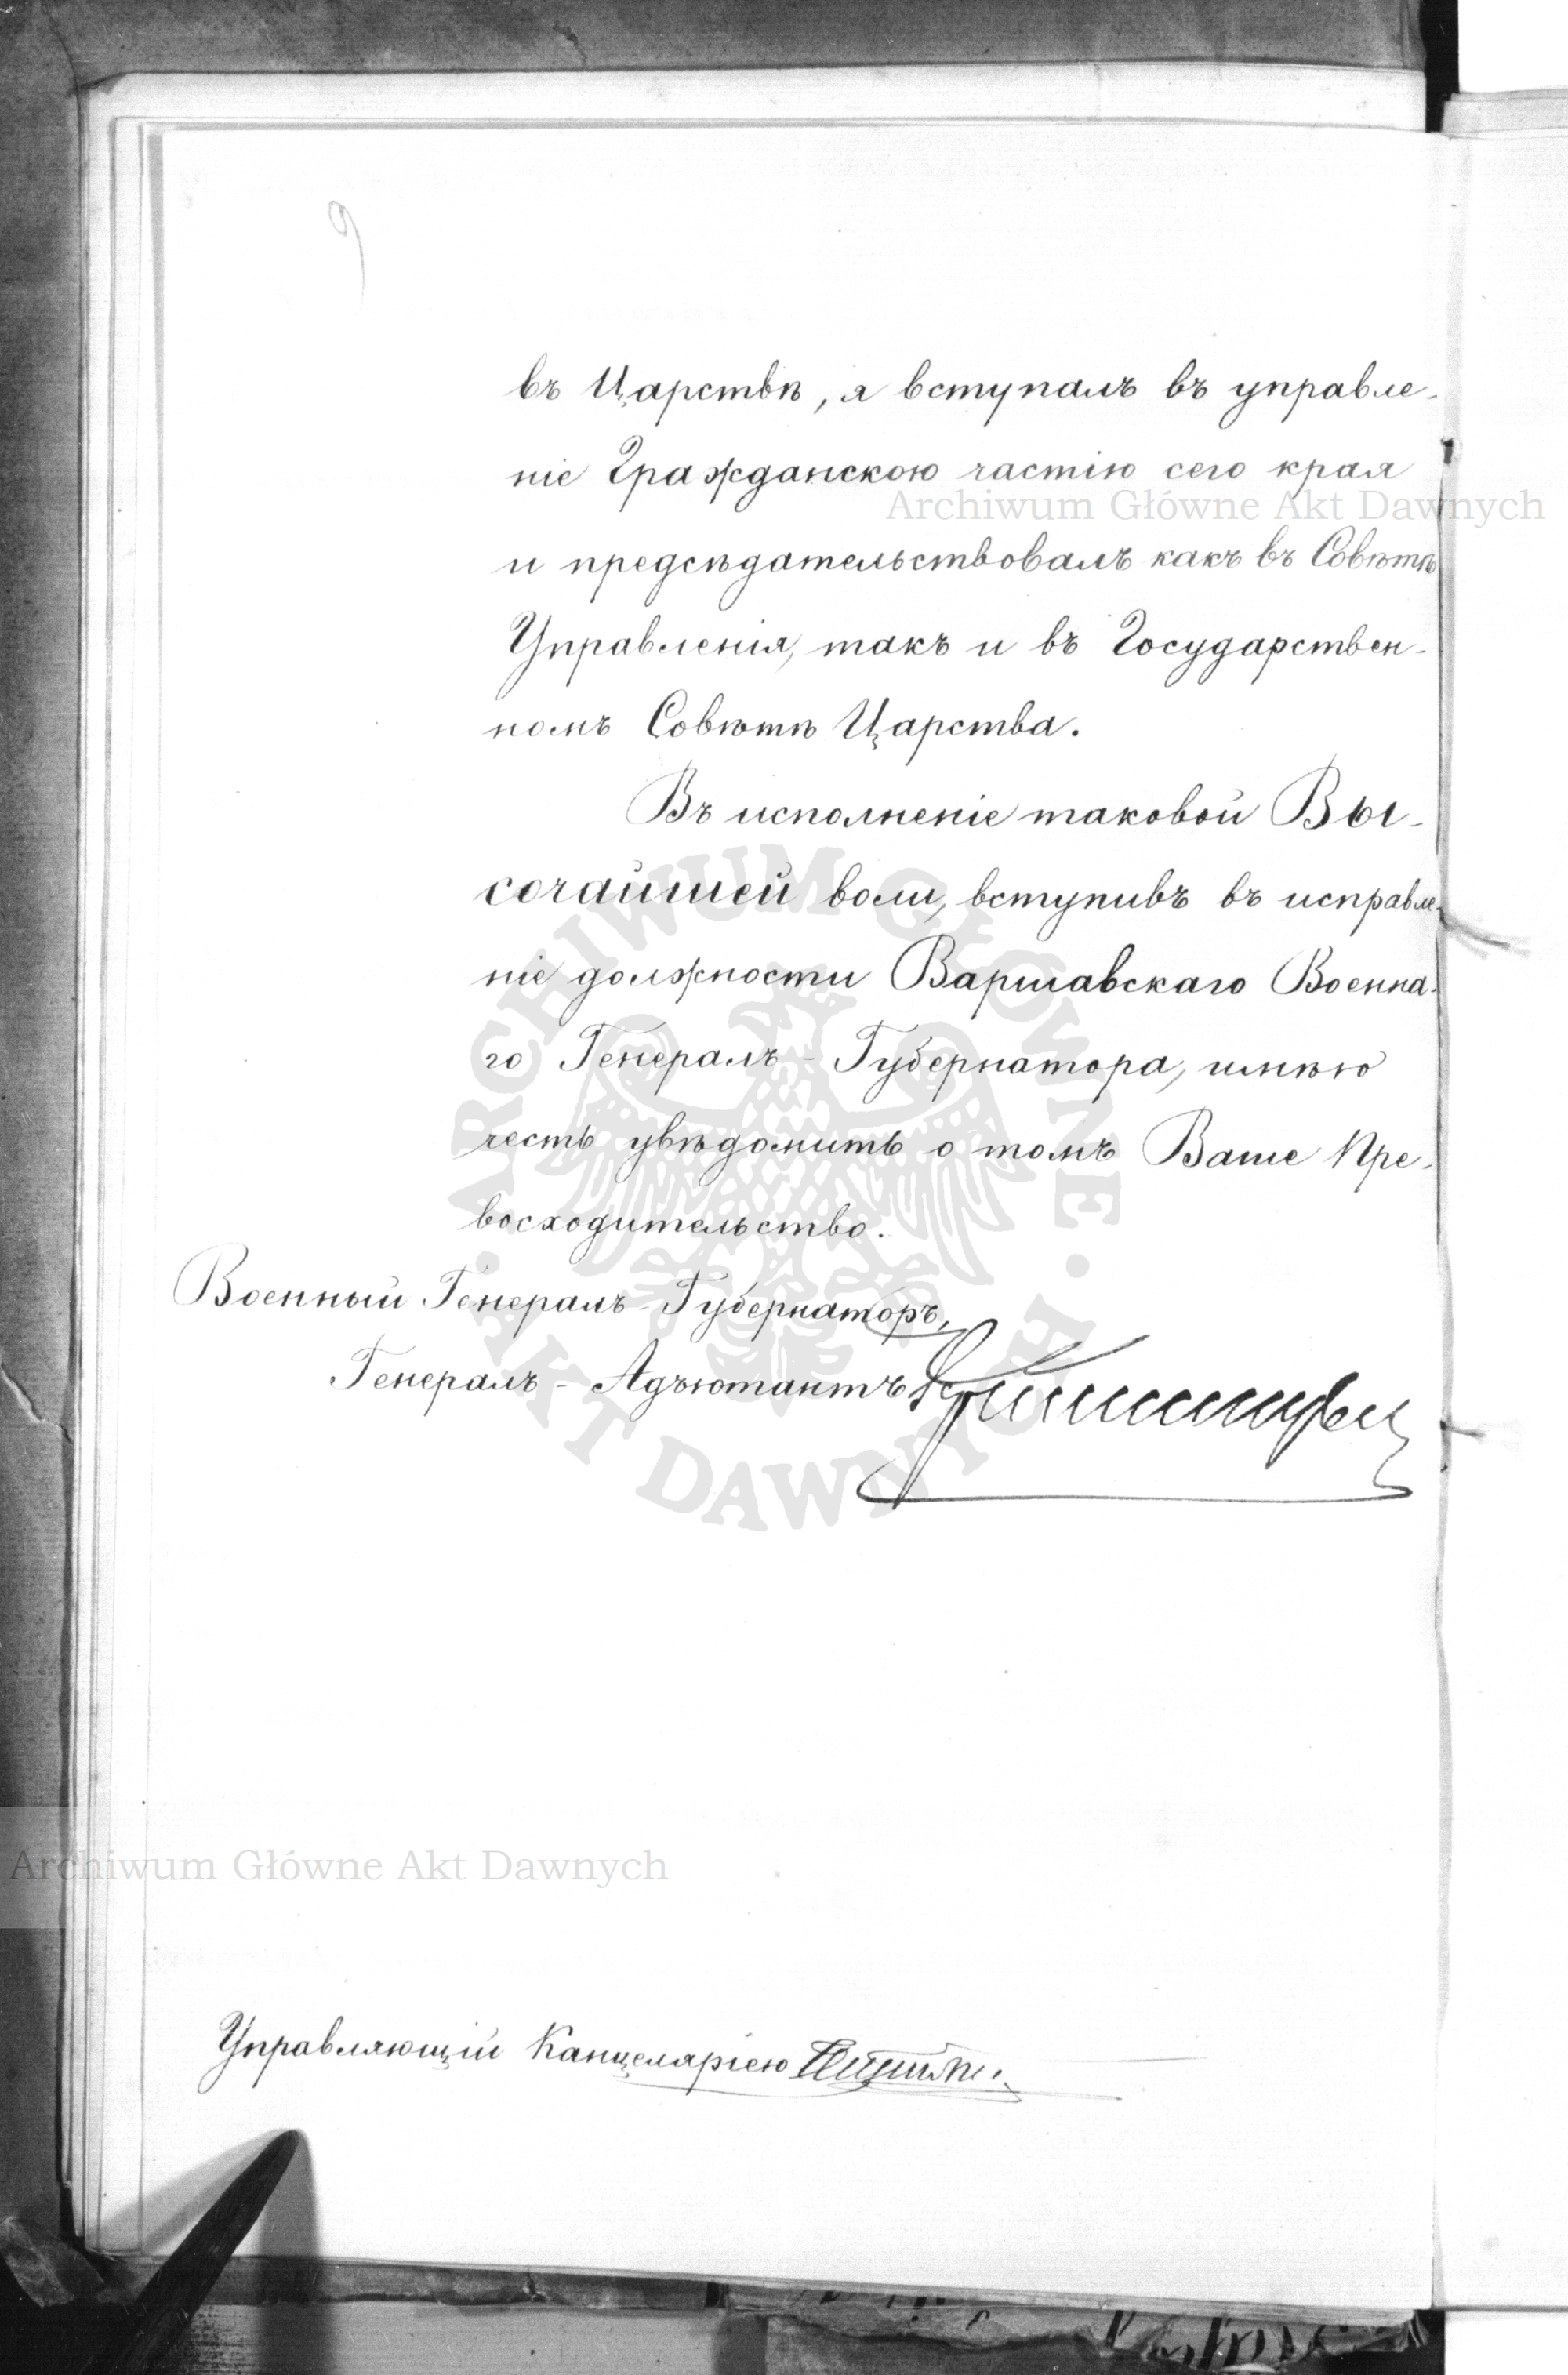 9
въ Царствѣ, я вступалъ въ управле-
ніе Гражданскою частію сего края
Archiwum Główne Akt Dawnych
и предсѣдательствовалъ какъ въ Совѣтѣ
Управленія, такъ и въ Государствен-
номъ Совѣтѣ Царства.
Въ исполненіе таковой Вы-
сочайшей воли, вступивъ въ исправле-
ніе должности Варшавскаго Военна-
го Генералъ-Губернатора, имѣю
честь увѣдомить о томъ Ваше Пре-
восходительство.
ARCHIWUM GŁÓWNE AKT DAWNYCH
Военный Генералъ-Губернаторъ,
Генералъ-Адъютантъ
Archiwum Główne Akt Dawnych
Управляющій Канцеляріею